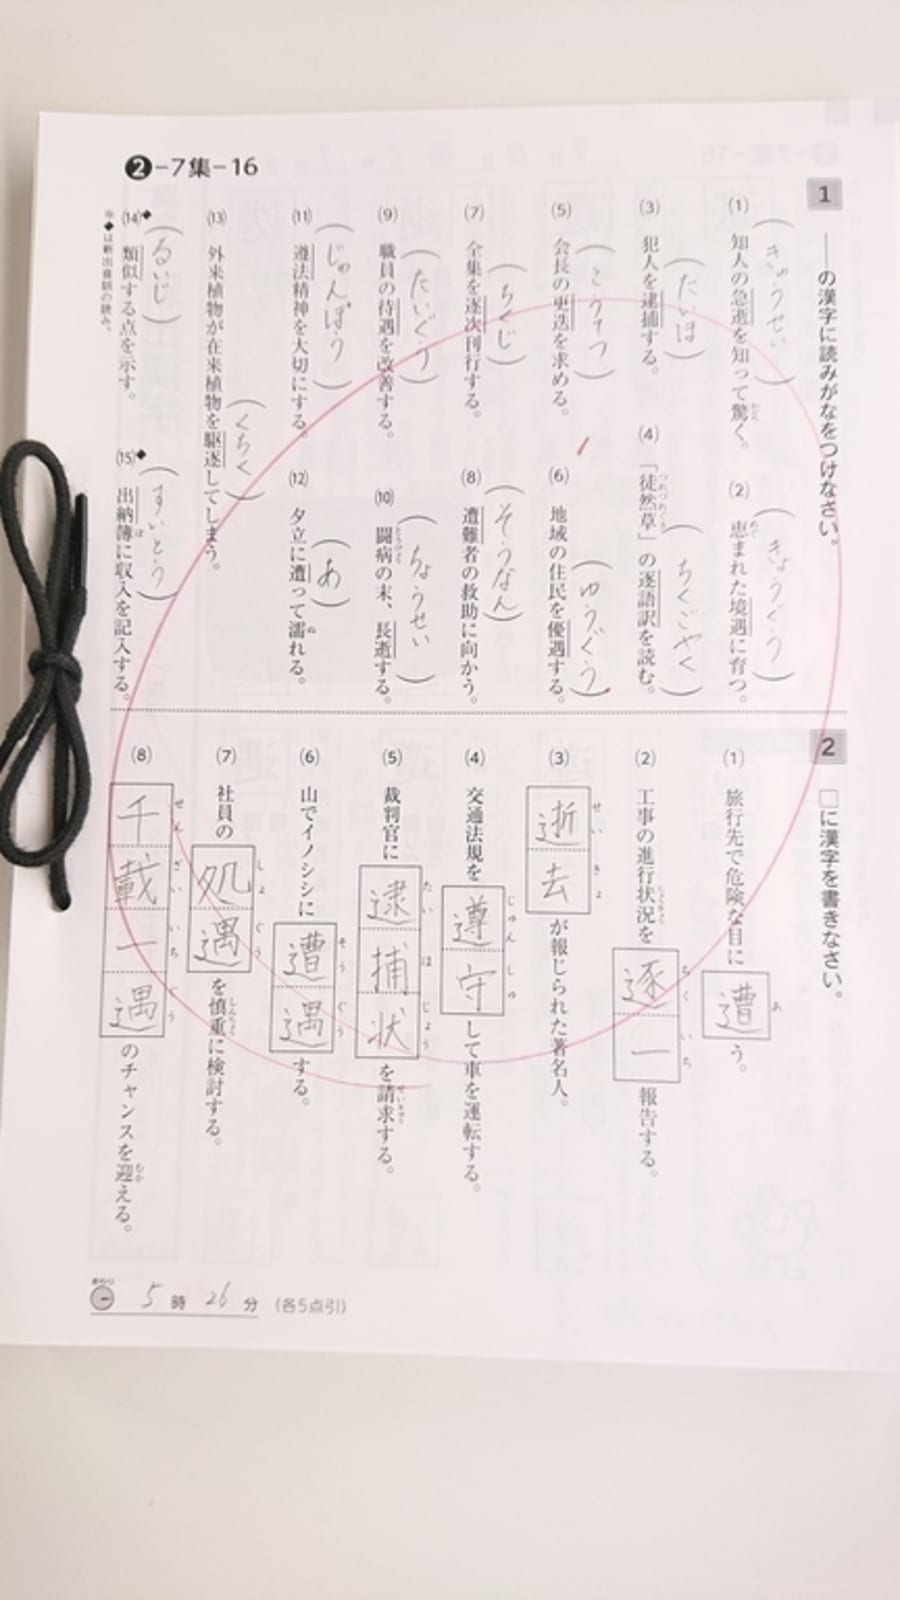 ❷-7集-16
1 ――の漢字に読みがなをつけなさい。
(1) 知人の急逝を知って驚く。
おどろ
(きゅうせい)
(2) 恵まれた境遇に育つ。
めぐ
(きょうぐう)
(3) 犯人を逮捕する。
(たいほ)
(4) 「徒然草」の逐語訳を読む。
つれづれぐさ
(ちくごやく)
(5) 会長の更迭を求める。
(こうてつ)
(6) 地域の住民を優遇する。
(ゆうぐう)
(7) 全集を逐次刊行する。
(ちくじ)
(8) 遭難者の救助に向かう。
(そうなん)
(9) 職員の待遇を改善する。
(たいぐう)
(10) 闘病の末、長逝する。
とうびょう
(ちょうせい)
(11) 遵法精神を大切にする。
(じゅんぽう)
(12) 夕立に遭って濡れる。
ぬ
(あ)
(13) 外来植物が在来植物を駆逐してしまう。
(くちく)
(14)◆ 類似する点を示す。
(るいじ)
(15)◆ 出納簿に収入を記入する。
ぼ
(すいとう)
※◆は新出音訓の読み。
2 □に漢字を書きなさい。
(1) 旅行先で危険な目に遭う。
あ
(2) 工事の進行状況を逐一報告する。
じょうきょう
ちくいち
(3) 逝去が報じられた著名人。
せいきょ
(4) 交通法規を遵守して車を運転する。
じゅんしゅ
(5) 裁判官に逮捕状を請求する。
たいほじょう
せいきゅう
(6) 山でイノシシに遭遇する。
そうぐう
(7) 社員の処遇を慎重に検討する。
しょぐう
しんちょう
(8) 千載一遇のチャンスを迎える。
せんざいいちぐう
むか
おわり 5時26分 (各5点引)